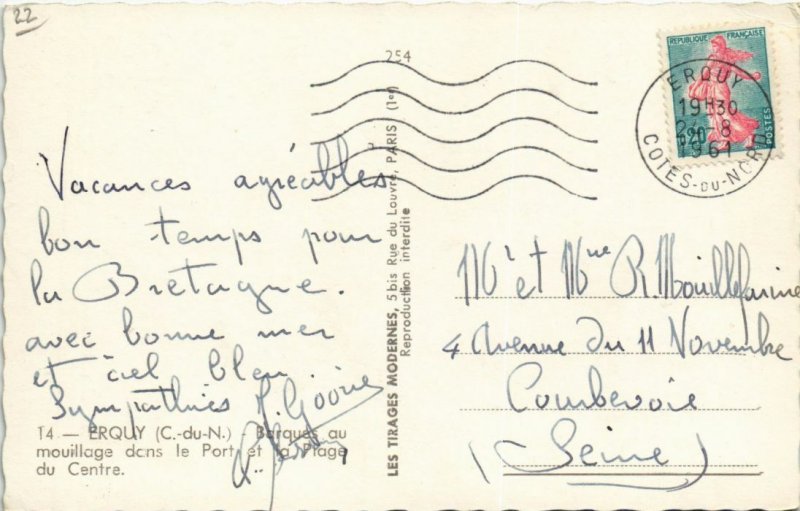 22
254
REPUBLIQUE FRANÇAISE
0,20
POSTES
ERQUY
19H30
8
1961
COTES-DU-NORD
Vacances agréables
bon temps pour
la Bretagne.
avec bonne mer
et ciel bleu.
Sympathies
14. — ERQUY (C.-du-N.) - Barques au
mouillage dans le Port et la Plage
du Centre.
LES TIRAGES MODERNES, 5 bis Rue du Louvre, PARIS (1er)
Reproduction interdite
Mr et Mme R. Mouillefarine
4 Avenue du 11 Novembre
Courbevoie
(Seine)